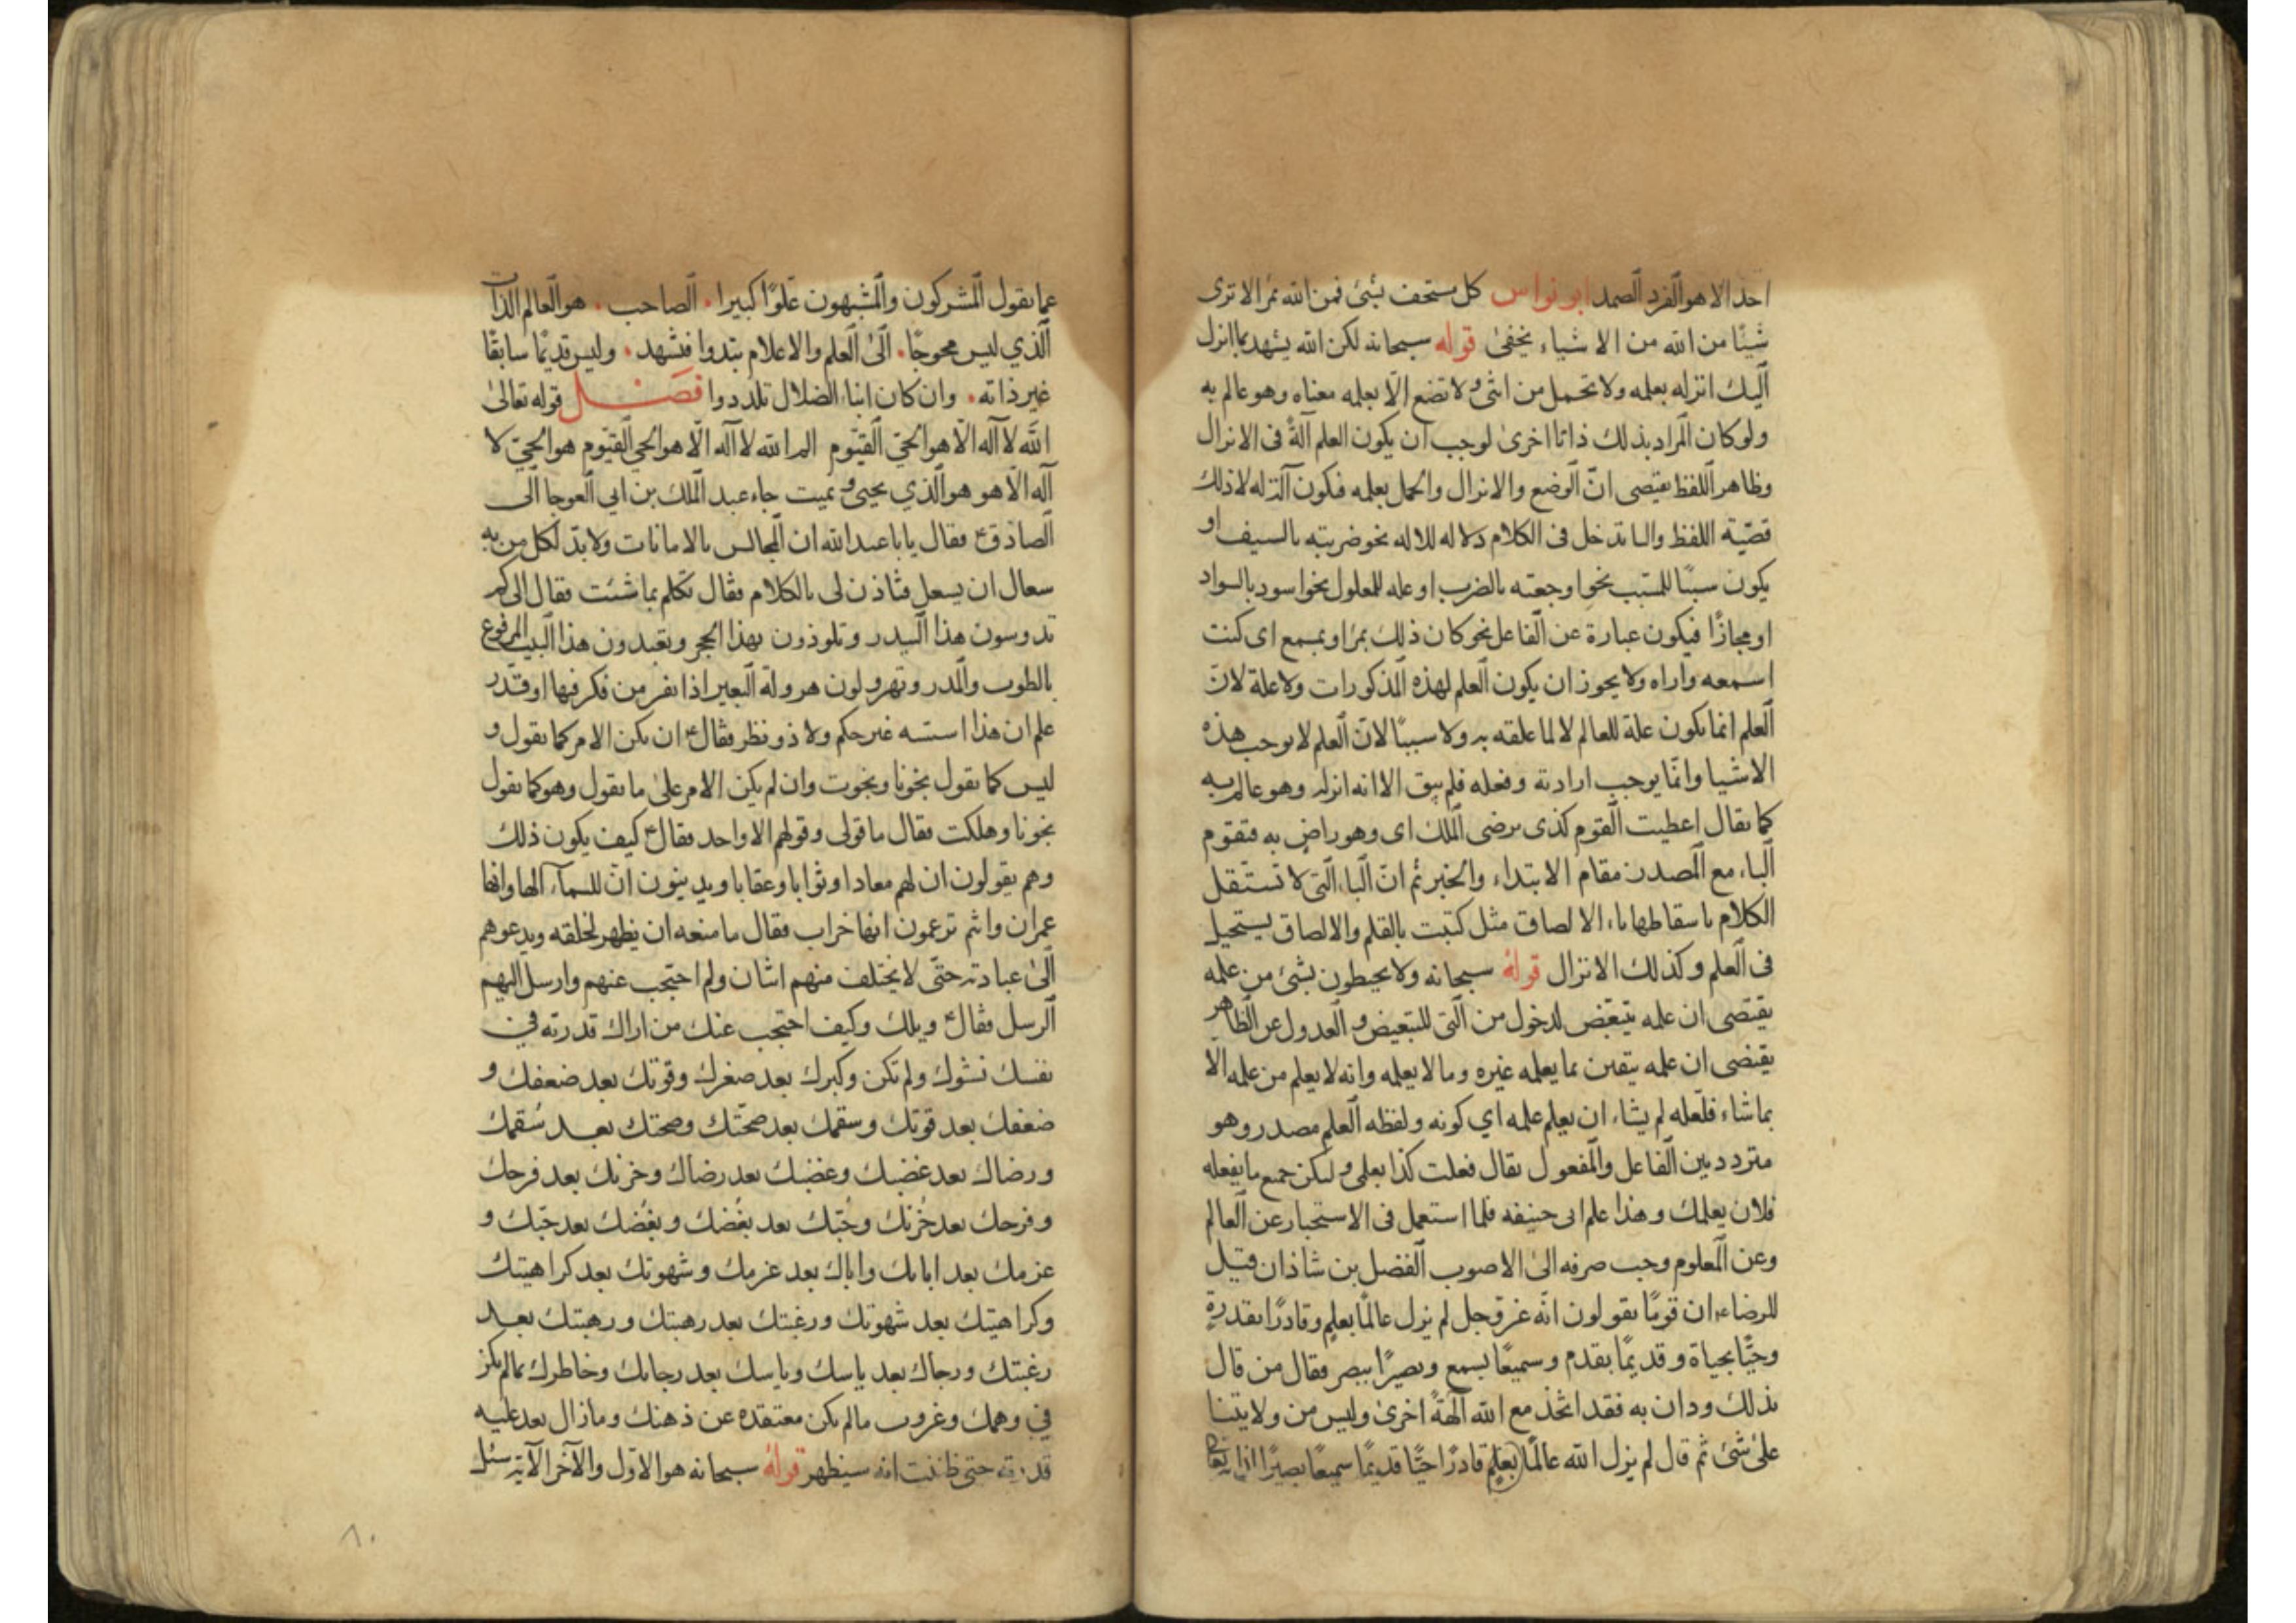 احد الا هو الفرد الصمد ابو نواس كل مستخف بشئ فمن الله بمرا لا ترى
شيئا من الله من الاشياء يخفى قوله سبحانه لكن الله يشهد بما انزل
اليك انزله بعلمه ولا تحمل من انثى ولا تضع الا بعلمه معناه وهو عالم به
ولو كان المراد بذلك ذاتا اخرى لوجب ان يكون العلم آلة فى الانزال
وظاهر اللفظ يقتصى ان الوضع والانزال والحمل بعلمه فيكون آلة له لا ذلك
قضية اللفظ والبا تدخل فى الكلام دلاله للاله نحو ضربته بالسيف او
يكون سببا للمسبب نحو اوجعته بالضرب او عله للمعلول نحو اسود بالسواد
او مجازا فيكون عبارة عن الفاعل نحو كان ذلك بمرا وبمسمع اى كنت
اسمعه واراه ولا يجوز ان يكون العلم لهذه المذكورات ولا علة لان
العلم انما يكون علة للعالم لا لما علقه به ولا سببا لان العلم لا يوجب هذه
الاشيا وانما يوجب ارادته وفعله فلم يبق الا انه انزله وهو عالم به
كما يقال اعطيت القوم كذى برضى الملك اى وهو راض به فتقوم
الباء مع المصدر مقام الابتداء والخبر ثم ان الباء التى لا تستقل
الكلام باسقاطها باء الالصاق مثل كتبت بالقلم والالصاق يستحيل
فى العلم وكذلك الانزال قوله سبحانه ولا يحيطون بشئ من علمه
يقتصى ان علمه يتبعض لدخول من التى للتبعيض والعدول عن الظاهر
يقتضى ان علمه يتقين بما يعلمه غيره وما لا يعلمه وانه لا يعلم من علمه الا
بما شاء فلعله لم يشاء ان يعلم علمه اي كونه ولفظه العلم مصدر وهو
متردد بين الفاعل والمفعول يقال فعلت كذا بعلمى وليكن جميع ما يفعله
فلان بعلمك وهذا علم ابى حنيفه فلما استعمل فى الاستخبار عن العالم
وعن المعلوم وجب صرفه الى الاصوب الفضل بن شاذان قيل
للرضا ان قوما يقولون انه عز وجل لم يزل عالما بعلم وقادرا بقدرة
وحيا بحياة وقديما بقدم وسميعا بسمع وبصيرا ببصر فقال من قال
بذلك ودان به فقد اتخذ مع الله آلهة اخرى وليس من ولايتنا
على شئ ثم قال لم يزل الله عالما بعلم قادرا حيا قديما سميعا بصيرا
عما يقول المشركون والمشبهون علوا كبيرا الصاحب هو العالم الذات
الذي ليس محوجا الى العلم والاعلام بتدوا فتشهد وليس قديما سابقا
غير ذاته وان كان ابناء الضلال تلددوا فصل قوله تعالى
الله لا اله الا هو الحي القيوم الم الله لا اله الا هو الحي القيوم هو الحي لا
اله الا هو هو الذي يحيى ويميت جاء عبد الملك بن ابي العوجا الى
الصادق ع فقال يا با عبد الله ان المجالس بالامانات ولا بد لكل من به
سعال ان يسعل فتاذن لى بالكلام فقال تكلم بما شئت فقال الى كم
تدوسون هذا البيدر وتلوذون بهذا الحجر وتعبدون هذا البيت المرفوع
بالطوب والمدر وتهرولون هرولة البعير اذا نفر من فكر فيها او قدر
علم ان هذا اسسه غير حكم ولا ذو نظر فقال ع ان يكن الامر كما تقول و
ليس كما تقول نجونا ونجوت وان لم يكن الامر على ما تقول وهو كما نقول
نجونا وهلكت فقال ما قولى وقولهم الا واحد فقال ع كيف يكون ذلك
وهم يقولون ان لهم معادا وثوابا وعقابا ويدينون ان للسماء الها وانها
عمران وانتم تزعمون انها خراب فقال ما منعه ان يظهر لخلقه ويدعوهم
الى عبادته حتى لا يختلف منهم اثنان ولم احتجب عنهم وارسل اليهم
الرسل فقال ع ويلك وكيف احتجب عنك من اراك قدرته في
نفسك نشوك ولم تكن وكبرك بعد صغرك وقوتك بعد ضعفك و
ضعفك بعد قوتك وسقمك بعد صحتك وصحتك بعد سقمك
ورضاك بعد غضبك وغضبك بعد رضاك وحزنك بعد فرحك
وفرحك بعد حزنك وحبك بعد بغضك وبغضك بعد حبك و
عزمك بعد ابائك واباك بعد عزمك وشهوتك بعد كراهيتك
وكراهيتك بعد شهوتك ورغبتك بعد رهبتك ورهبتك بعد
رغبتك ورجاك بعد ياسك وياسك بعد رجائك وخاطرك بما لم يكن
في وهمك وغروب ما لم يكن معتقده عن ذهنك وما زال يعد عليه
قدرته حتى ظننت انه سيظهر قوله سبحانه هو الاول والآخر الآية سئل
٨٠